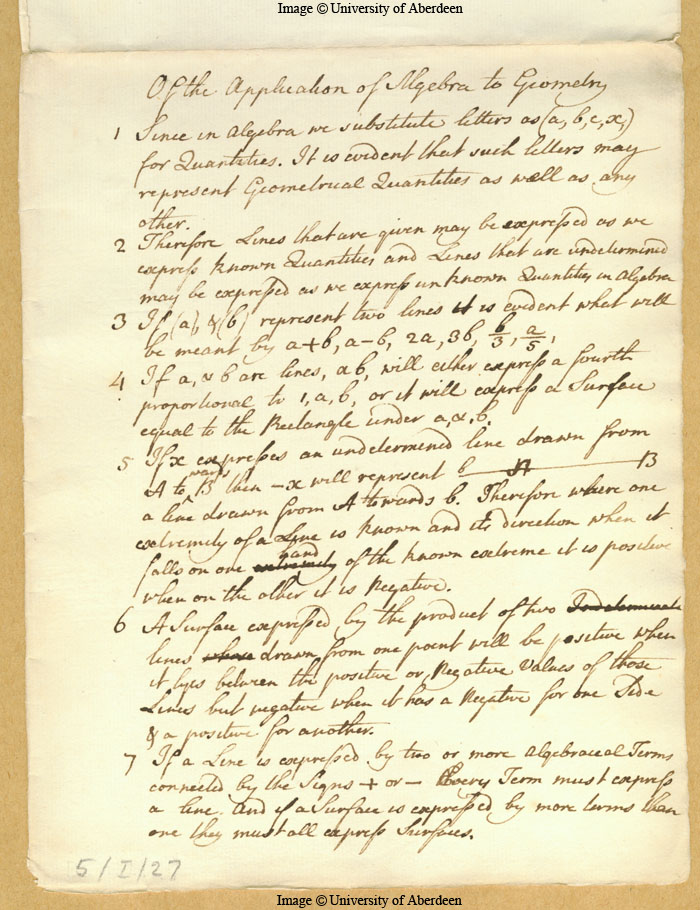 Image © University of Aberdeen
Of the Application of Algebra to Geometry
1 Since in Algebra we substitute letters as (a, b, c, x,)
for Quantities. It is evident that such letters may
represent Geometrical Quantities as well as any
other.
2 Therefore Lines that are given may be expressed as we
express known Quantities and Lines that are undetermined
may be expressed as we express unknown Quantities in Algebra
3 If (a) & (b) represent two lines it is evident what will
be meant by a+b, a-b, 2a, 3b, b/3, a/5,
4 If a, & b are lines, ab, will either express a fourth
proportional to 1, a, b, or it will express a Surface
equal to the Rectangle under a, & b.
5 If x expresses an undetermined line drawn from
A to wards B then -x will represent b A B
a line drawn from A towards b. Therefore where one
extremity of a Line is known and its direction when it
falls on one extremity hand of the known extreme it is positive
when on the other it is Negative.
6 A Surface expressed by the product of two Indeterminate
lines whose drawn from one point will be positive when
it lyes between the positive or Negative Values of those
Lines but negative when it has a Negative for one Side
& a positive for another.
7 If a Line is expressed by two or more Algebraical Terms
connected by the Signs + or - Every Term must express
a line. And if a Surface is expressed by more terms than
one they must all express Surfaces.
5/I/27
Image © University of Aberdeen